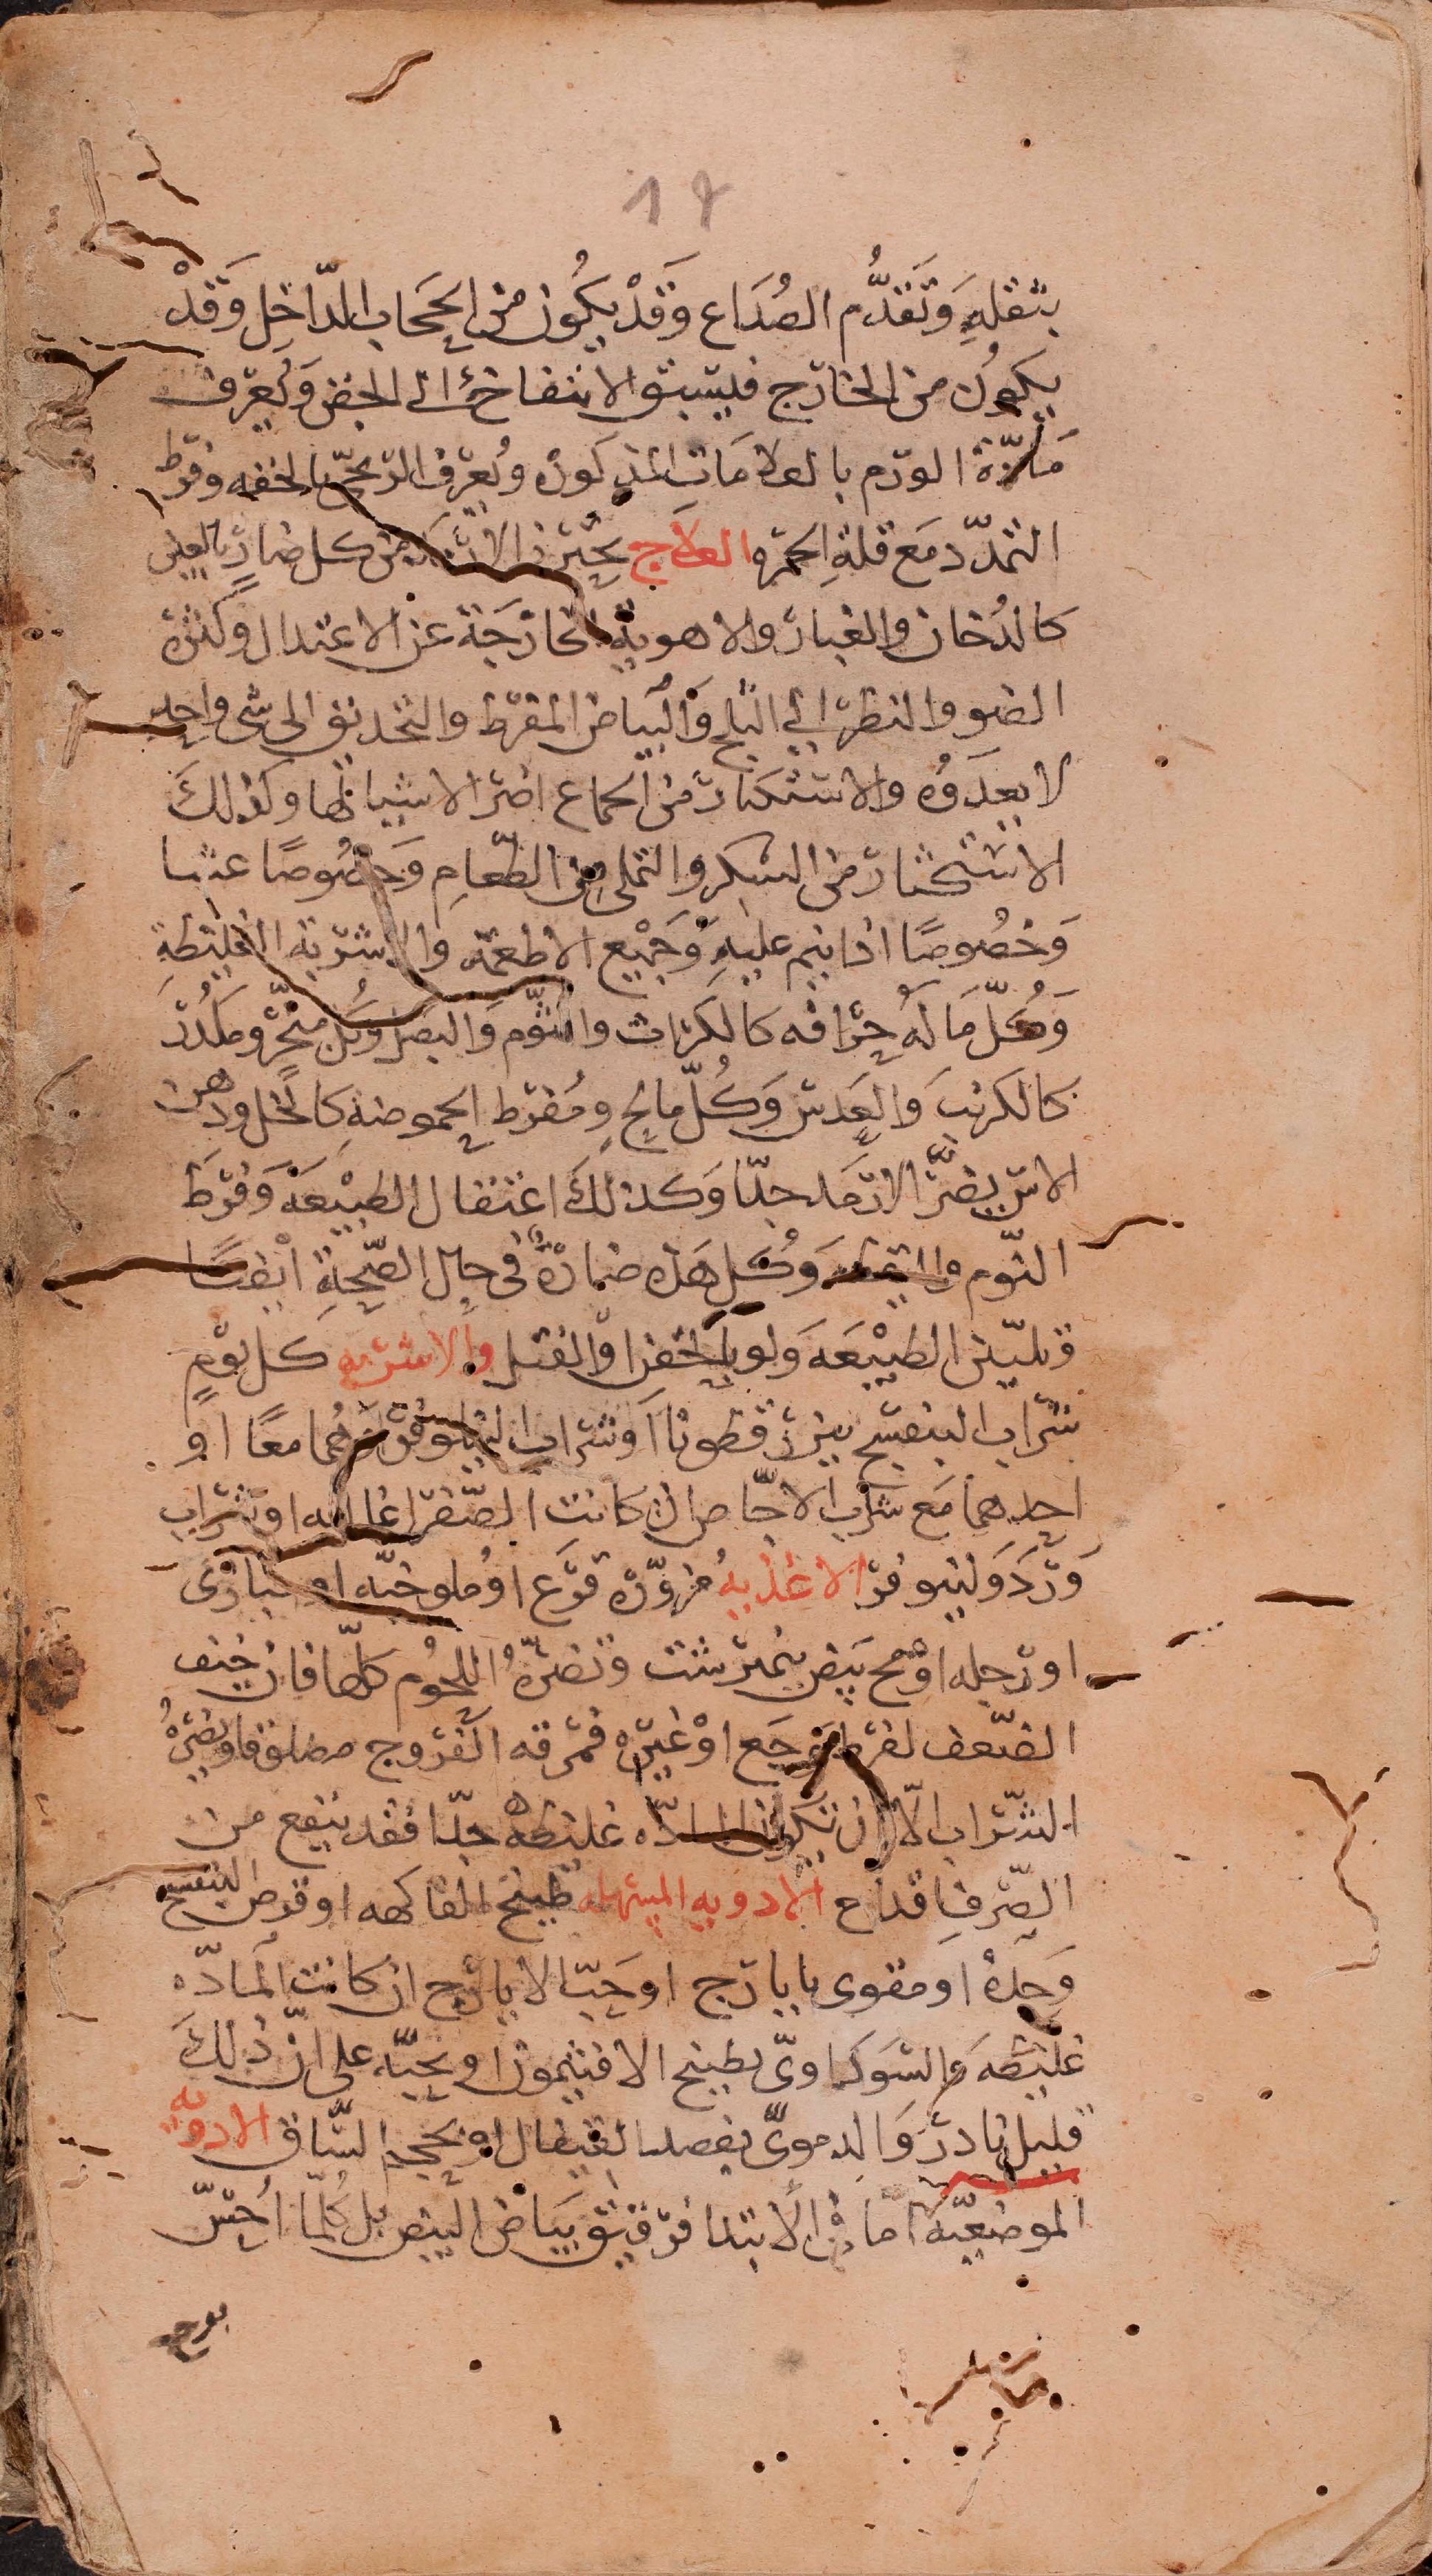 17
بثقلهِ وَتَقدُّم الصُدَاع وَقَدْ يكُون من الحجَاب الدّاخِل وَقَدْ
يكونُ من الخارج فيسبق الانتفاخ الى الجفن وَيُعرف
مَادّة الورم بالعلامَات المذكوره ويُعرف الريحىّ بالخفه وفرط
التمدّد مَع قلةِ الحمره العلاج يحترز الارمَد من كل ضارّ بالعين
كالدُخان والغبار والاهوية الخارَجَة عن الاعتدال وكثرة
الضوء والنظر الي الثلج وَالبياض المفرط والتحديق الى شى واحِد
لا يعدَوُه والاستكثار من الجماع اضر الاشيا لها وكذلكَ
الاستكثار من السكر والتملى من الطّعامِ وَخصُوصًا عشا
وَخصُوصًا اذا ينم عليهِ وَجَمْيع الاطعمة والاشربة الغليظةِ
وَكُلّ مَا لهُ حِرافه كالكراث والثّوم وَالبصل وكل مبخّر ومكدّر
كالكرنب وَالعَدس وَكُلّ مالحٍ ومُفرط الحموضةِ كالخل ودهن
الاس يضرّ الارمَد جدّا وَكذلكَ اعتقال الطبيْعَة وَفرَط
النّوم واليقظه وَكُل هَذه ضارّة فى حال الصّحةِ ايْضًا
وتليّن الطبيْعَه وَلو بالحقن اوْ الفتل والاشربه كل يَومٍ
شرَاب البنفسج ببزر قطونا اَو شراب النيلوفر اَو هُما معًا او
احدهما مَع شراب الاجّاص ان كانت الصّفرا غالبه او شراب
وَرد وَلينوفر الاغذيهُ مزوّرة قرَع او ملوخيّه او خبازى
او رجله او مح بَيض نيمرشت وتضرّهُ اللحُوم كلّها فان خيف
الضّعف لفرط وَجَع اوْ غيره فمَرقه الفَرّوج مصلوقا ويضرّهُ
الشّراب الّا ان تكون المادّه غليظه جدّا فقد ينفع من
الصّرفِ اقداح الادويه المسهله طبيخ الفاكهه او قرص البنفسج
وَحدهُ او مقوى بايارج او حَبّ الايارج ان كانت المَادّه
غليظهَ وَالسَوداوىّ بطبيخ الافتيمون او بحبّه على انّ ذلكَ
قليل نادر وَالدموىّ بفصد القيفال او بحجم السّاق الادويه
الموضعيّه امّا فى الابتدا فرقيق بيَاض البيض بل كُلّما اُحسّ
بوجع